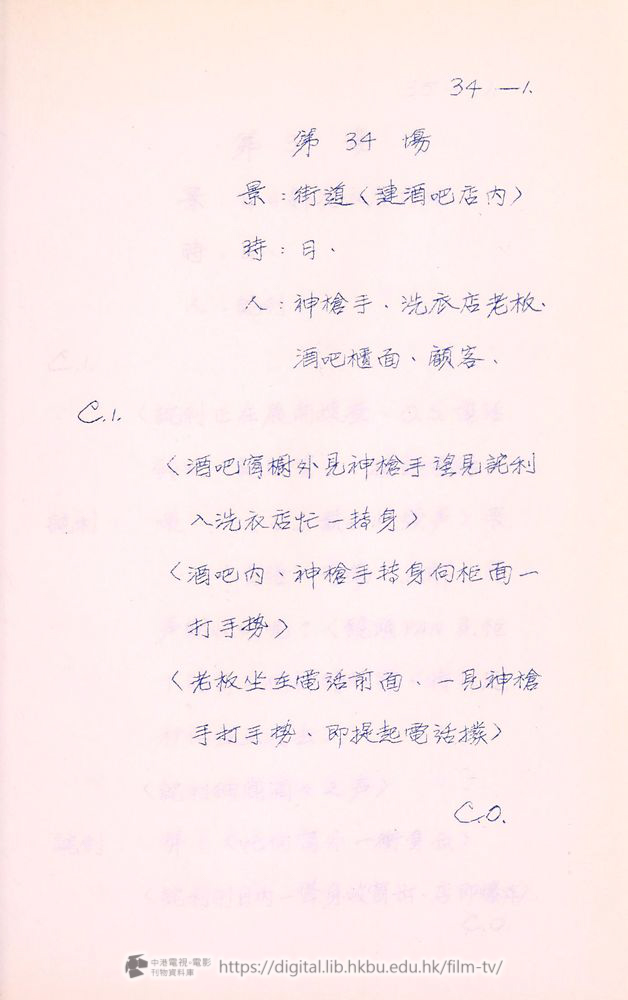 34 —1.
第 34 場
景：街道〈連酒吧店內〉
時：日．
人：神槍手．洗衣店老板．
酒吧櫃面、顧客．
C.1.
〈酒吧窗櫥外見神槍手望見說利
入洗衣店忙一轉身〉
〈酒吧內、神槍手轉身向柜面一
打手势〉
〈老板坐在電話前面、一見神槍
手打手势、即提起電話撥〉
C.O.
中港電視·電影
刊物資料庫
https://digital.lib.hkbu.edu.hk/film-tv/